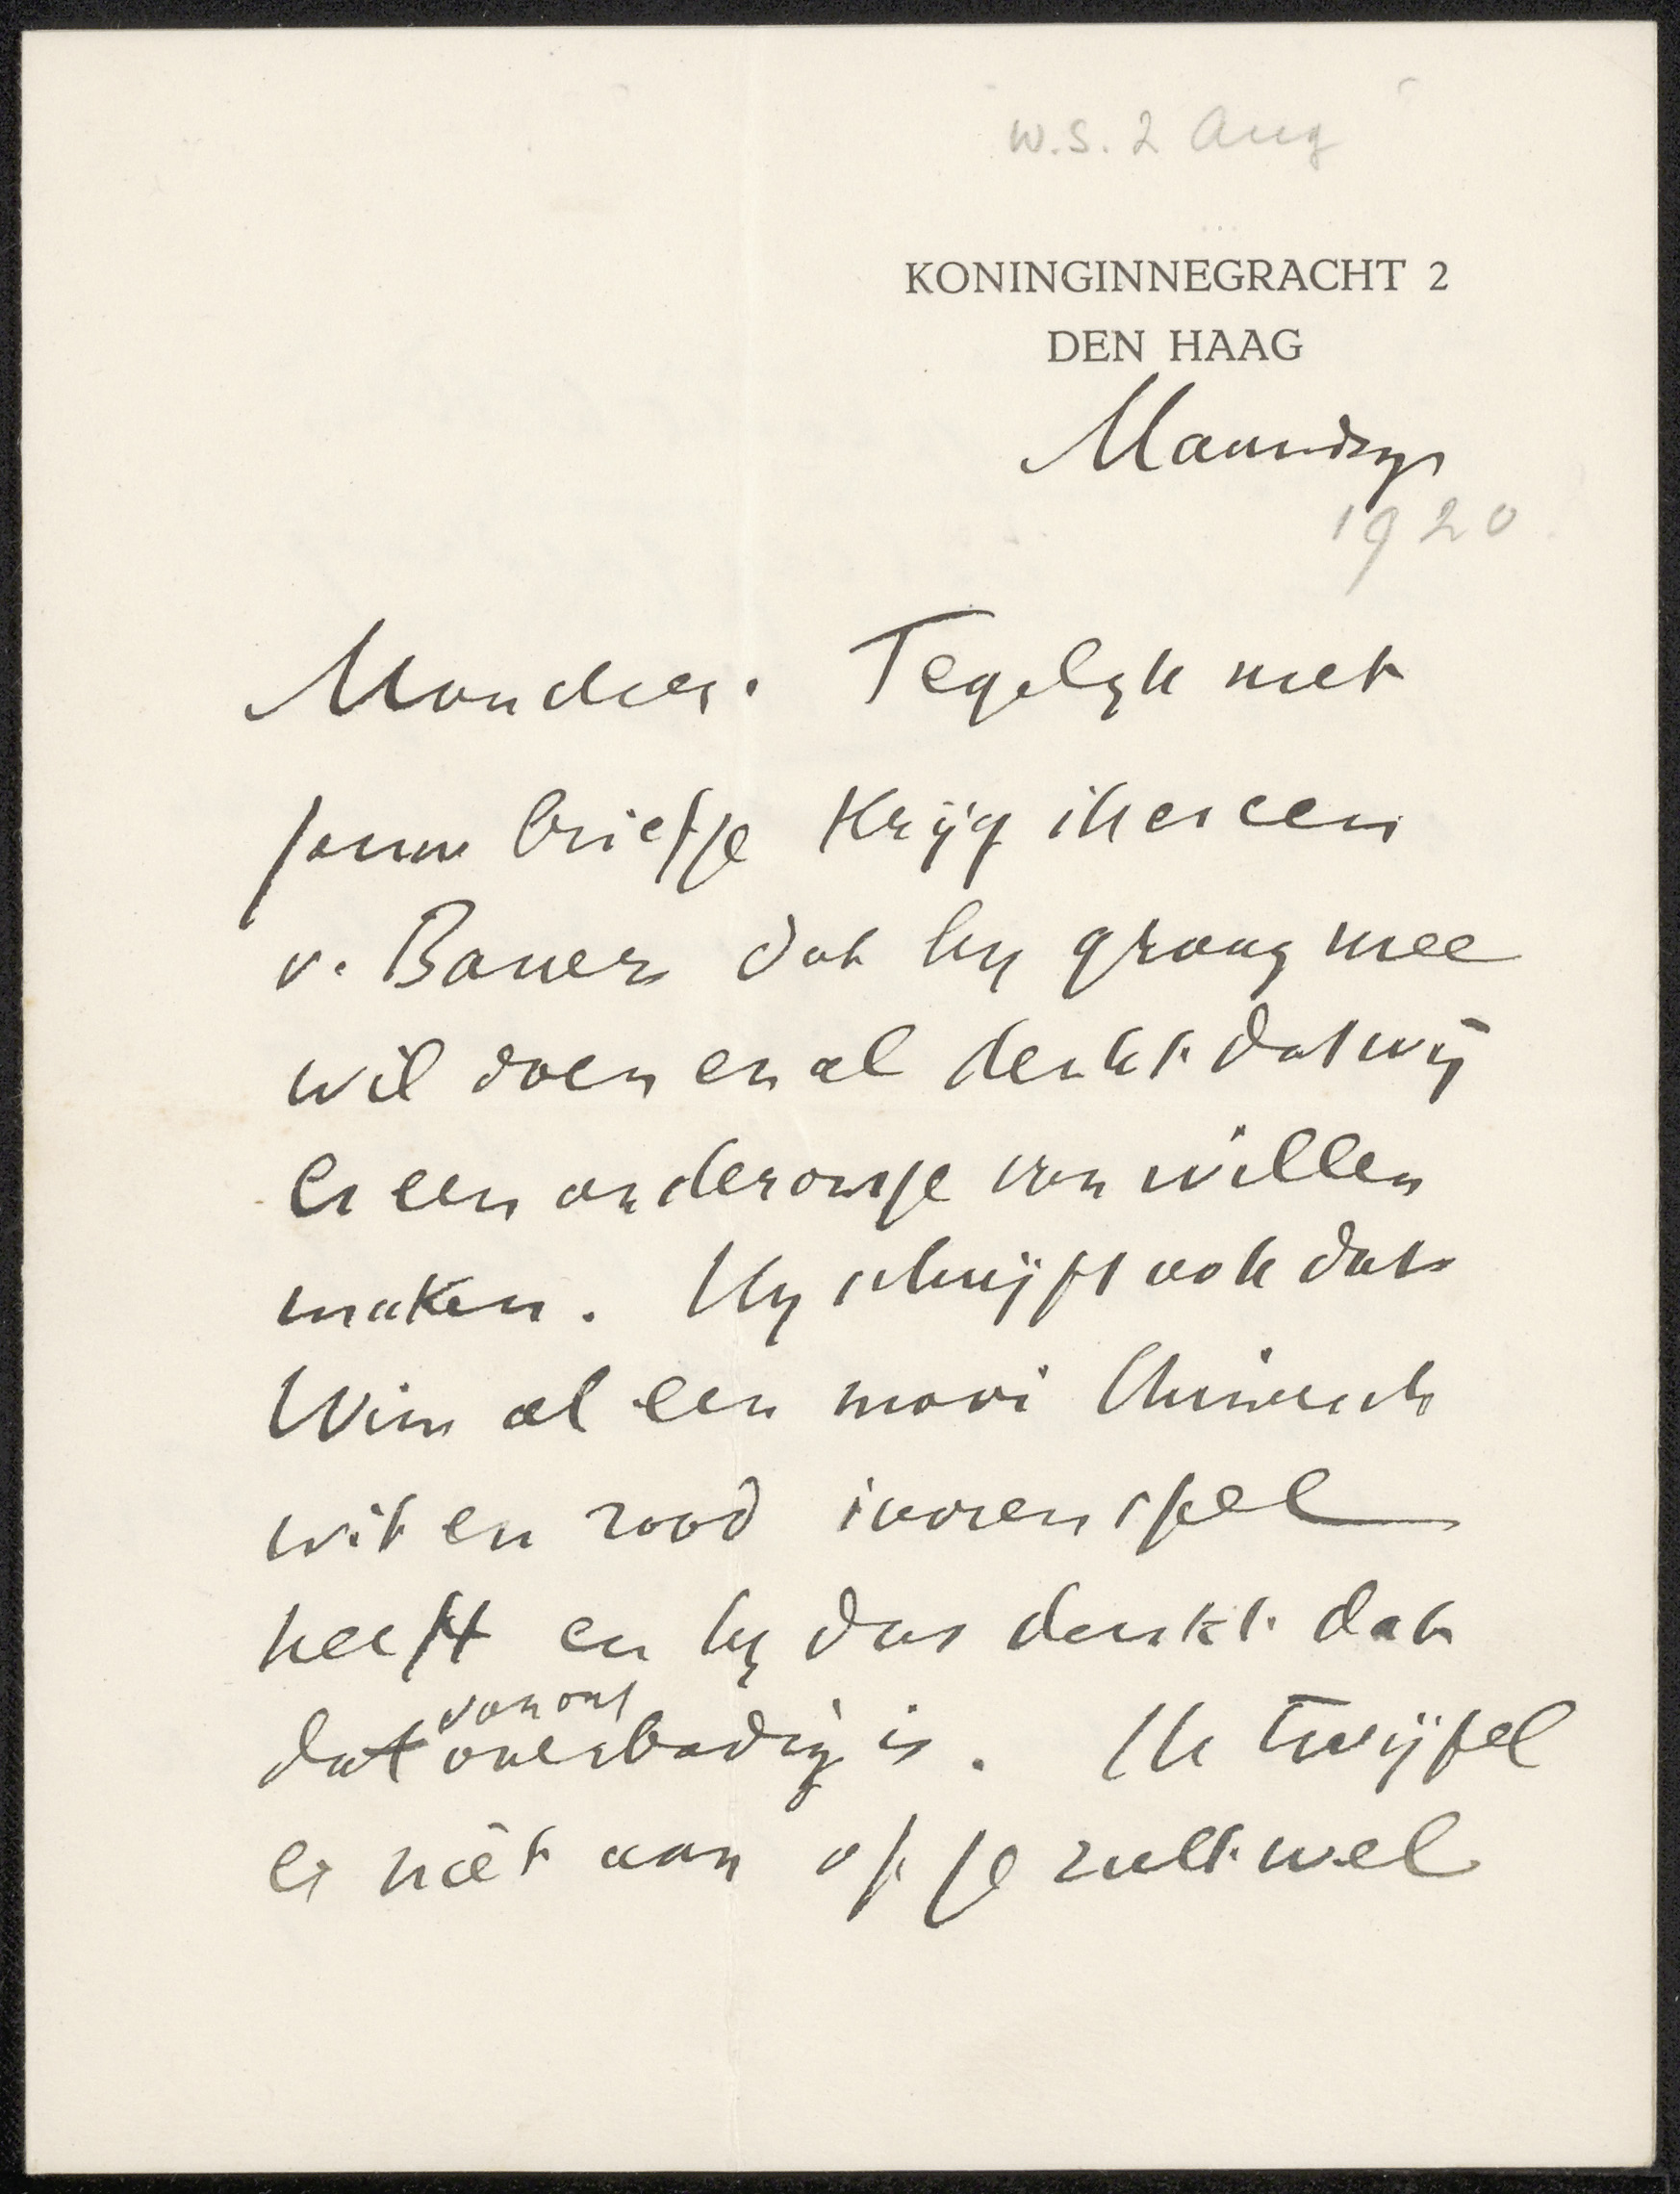 w.s. 2 Aug
KONINGINNEGRACHT 2
DEN HAAG
Maandag
1920
Tegelyk met
jouw briefje krijg ik er een
v. Bauer dat hy graag mee
wil doen en al denkt dat wij
er een onderonsje van willen
maken. Hy schrijft ook dat
Wim al een mooi Chineesch
wit en rood ivoren spel
heeft en hy dus denkt dat
dat van ons overbodig is. Ik twijfel
er niet aan of je zult wel